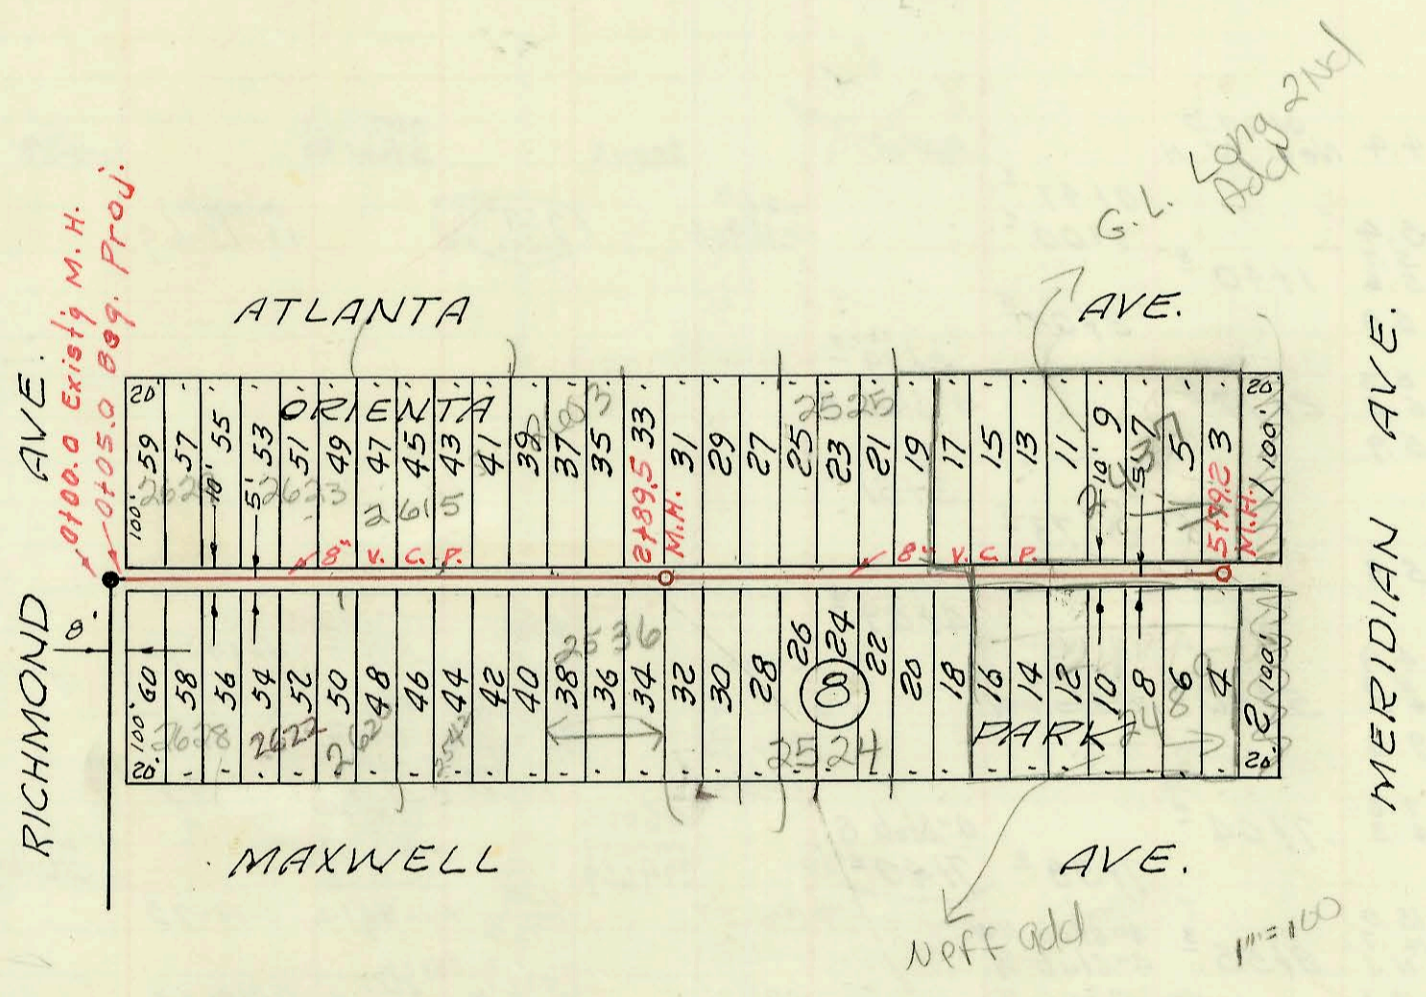 G.L. Long 2Nd
Add
0+00.0 Exist'g M.H.
0+05.0 Beg. Proj.
ATLANTA AVE.
RICHMOND AVE.
MERIDIAN AVE.
20' 20'
ORIENTA
59 57 55 53 51 49 47 45 43 41 39 37 35 33 31 29 27 25 23 21 19 17 15 13 11 9 7 5 3 1
100' 10' 5' 10' 5' 100'
2623 2615 2603 2525
2+89.5 M.H.
5+79.2 M.H.
8" V. C. P. 8" V. C. P.
8'
60 58 56 54 52 50 48 46 44 42 40 38 36 34 32 30 28 26 24 22 20 18 16 14 12 10 8 6 4 2
100' 100'
8
2628 2622 2620 2542 2536 2524
PARK
20' 20'
MAXWELL AVE.
Neff add
1"=100